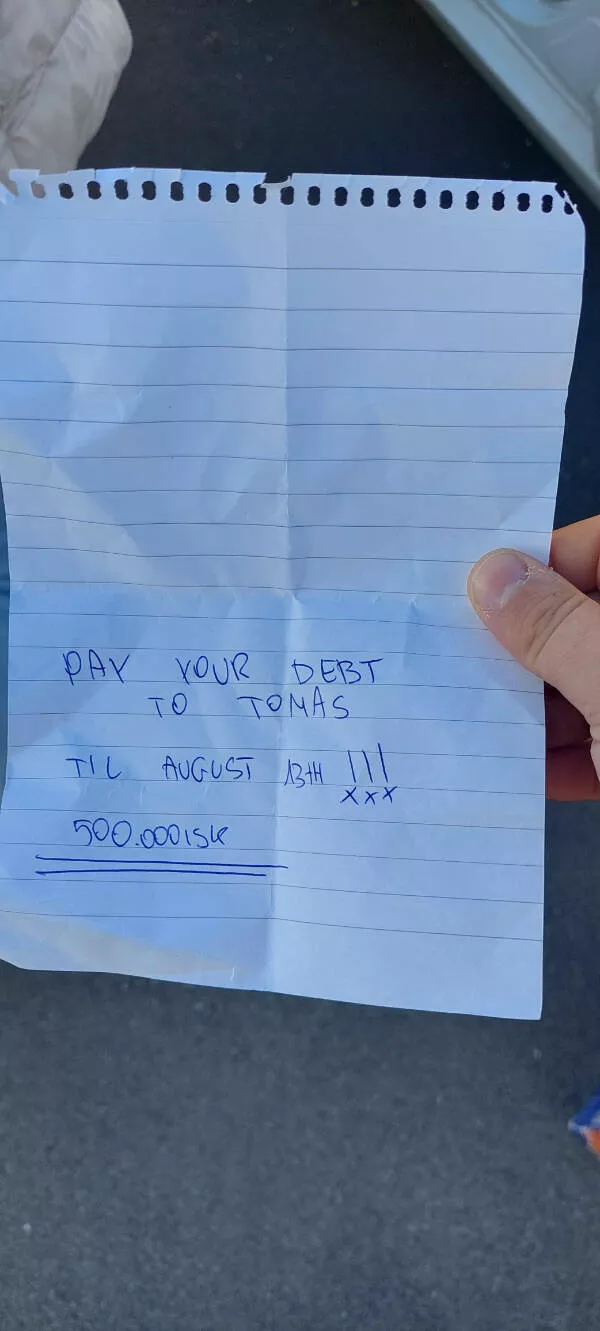 PAY YOUR DEBT
TO TOMAS
TIL AUGUST 13TH !!!
500.000ISK